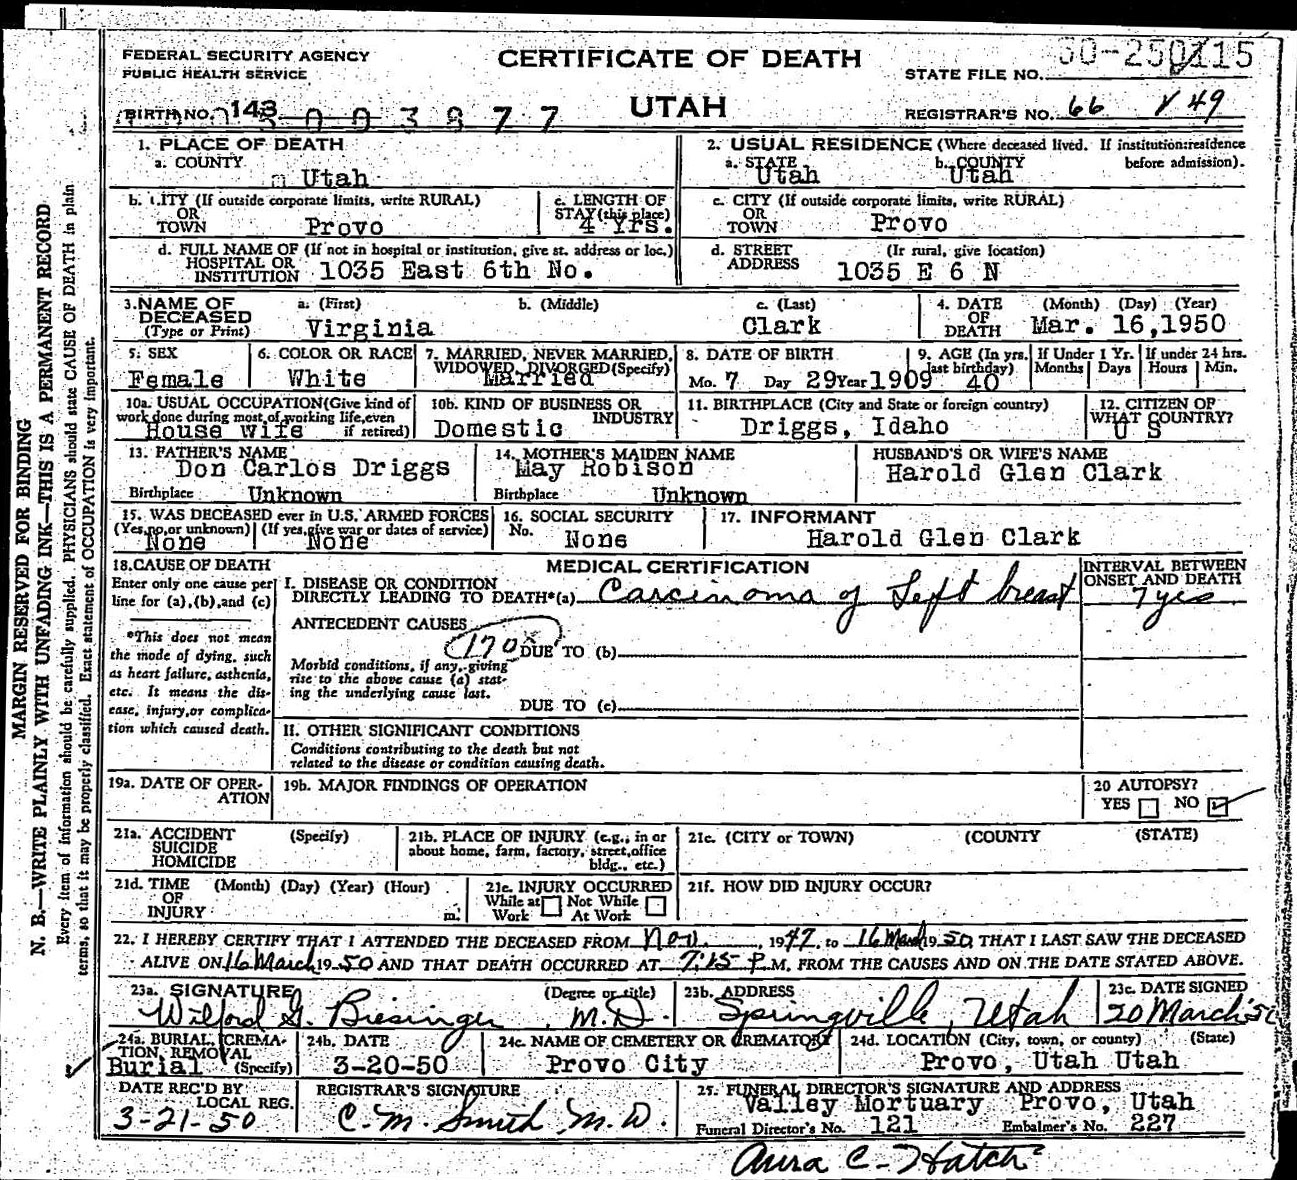 FEDERAL SECURITY AGENCY
PUBLIC HEALTH SERVICE
CERTIFICATE OF DEATH
UTAH
STATE FILE NO.
BIRTH NO. 143
003877
REGISTRAR'S NO. 66 V 49
1. PLACE OF DEATH
a. COUNTY
Utah
2. USUAL RESIDENCE (Where deceased lived. If institution:residence before admission).
a. STATE b. COUNTY
Utah Utah
b. CITY (If outside corporate limits, write RURAL)
OR
TOWN Provo
c. LENGTH OF
STAY (this place)
4 Yrs.
c. CITY (If outside corporate limits, write RURAL)
OR
TOWN Provo
d. FULL NAME OF (If not in hospital or institution, give st. address or loc.)
HOSPITAL OR
INSTITUTION 1035 East 6th No.
d. STREET (If rural, give location)
ADDRESS 1035 E 6 N
3. NAME OF DECEASED (Type or Print)
a. (First) b. (Middle) c. (Last)
Virginia Clark
4. DATE OF DEATH (Month) (Day) (Year)
Mar. 16,1950
5. SEX
Female
6. COLOR OR RACE
White
7. MARRIED, NEVER MARRIED,
WIDOWED, DIVORGED(Specify)
Married
8. DATE OF BIRTH
Mo. 7 Day 29 Year 1909
9. AGE (In yrs. last birthday)
40
If Under 1 Yr. Months Days
If under 24 hrs. Hours Min.
10a. USUAL OCCUPATION(Give kind of
work done during most of working life,even
if retired)
House wife
10b. KIND OF BUSINESS OR
INDUSTRY
Domestic
11. BIRTHPLACE (City and State or foreign country)
Driggs, Idaho
12. CITIZEN OF
WHAT COUNTRY?
U S
13. FATHER'S NAME
Don Carlos Driggs
Birthplace Unknown
14. MOTHER'S MAIDEN NAME
May Robison
Birthplace Unknown
HUSBAND'S OR WIFE'S NAME
Harold Glen Clark
15. WAS DECEASED ever in U.S. ARMED FORCES
(Yes,no,or unknown) (If yes,give war or dates of service)
None None
16. SOCIAL SECURITY
No. None
17. INFORMANT
Harold Glen Clark
18. CAUSE OF DEATH
Enter only one cause per
line for (a),(b),and (c)
*This does not mean
the mode of dying, such
as heart failure, asthenia,
etc. It means the dis-
ease, injury,or complica-
tion which caused death.
MEDICAL CERTIFICATION
INTERVAL BETWEEN
ONSET AND DEATH
I. DISEASE OR CONDITION
DIRECTLY LEADING TO DEATH*(a) Carcinoma of Left breast 7 yrs
ANTECEDENT CAUSES
170 DUE TO (b)
Morbid conditions, if any, giving
rise to the above cause (a) stat-
ing the underlying cause last.
DUE TO (c)
II. OTHER SIGNIFICANT CONDITIONS
Conditions contributing to the death but not
related to the disease or condition causing death.
19a. DATE OF OPER-
ATION
19b. MAJOR FINDINGS OF OPERATION
20 AUTOPSY?
YES NO
21a. ACCIDENT (Specify)
SUICIDE
HOMICIDE
21b. PLACE OF INJURY (e.g., in or
about home, farm, factory, street,office
bldg., etc.)
21c. (CITY or TOWN) (COUNTY) (STATE)
21d. TIME (Month) (Day) (Year) (Hour)
OF
INJURY m.
21e. INJURY OCCURRED
While at Not While
Work At Work
21f. HOW DID INJURY OCCUR?
22. I HEREBY CERTIFY THAT I ATTENDED THE DECEASED FROM Nov. , 1947, to 16 March 1950, THAT I LAST SAW THE DECEASED
ALIVE ON 16 March 1950 AND THAT DEATH OCCURRED AT 7:15 P.M. FROM THE CAUSES AND ON THE DATE STATED ABOVE.
23a. SIGNATURE (Degree or title)
Wilford G. Biesinger, M.D.
23b. ADDRESS
Springville, Utah
23c. DATE SIGNED
20 March '50
24a. BURIAL, CREMA-
TION, REMOVAL
Burial (Specify)
24b. DATE
3-20-50
24c. NAME OF CEMETERY OR CREMATORY
Provo City
24d. LOCATION (City, town, or county) (State)
Provo, Utah Utah
DATE REC'D BY
LOCAL REG.
3-21-50
REGISTRAR'S SIGNATURE
C. M. Smith, M.D.
25. FUNERAL DIRECTOR'S SIGNATURE AND ADDRESS
Valley Mortuary Provo, Utah
Funeral Director's No. 121 Embalmer's No. 227
C. Hatch
MARGIN RESERVED FOR BINDING
N. B.—WRITE PLAINLY WITH UNFADING INK—THIS IS A PERMANENT RECORD
Every item of information should be carefully supplied. PHYSICIANS should state CAUSE OF DEATH in plain
terms, so that it may be properly classified. Exact statement of OCCUPATION is very important.